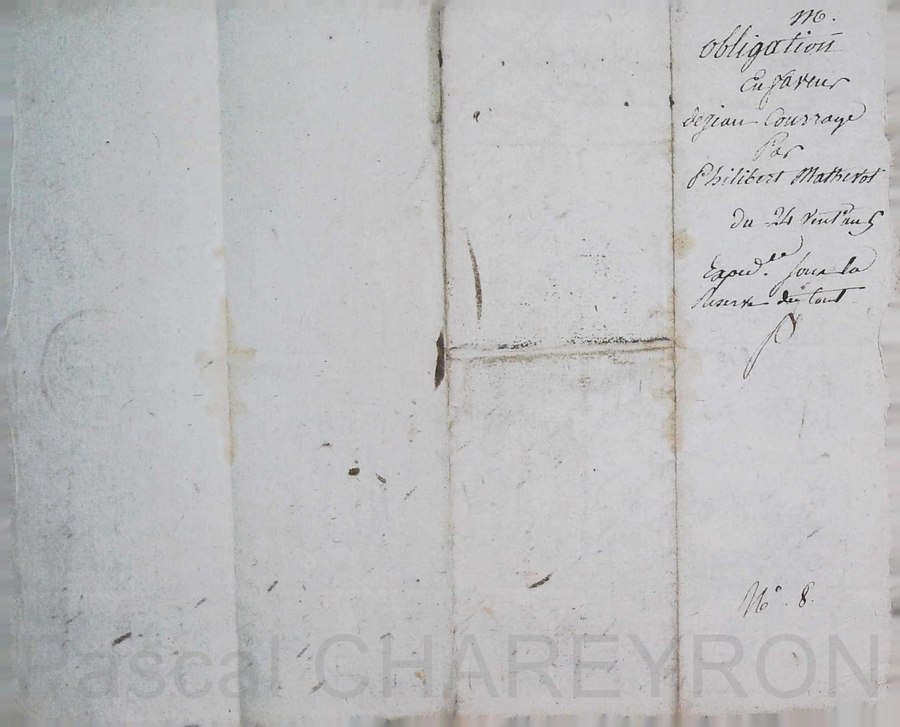 m.
obligation
En faveur
de jean Courrage
Par
Philibert Matherot
du 24 vent. an 5
Exped.ée sous la
Reserve du tout
N.° 8.
Pascal CHAREYRON